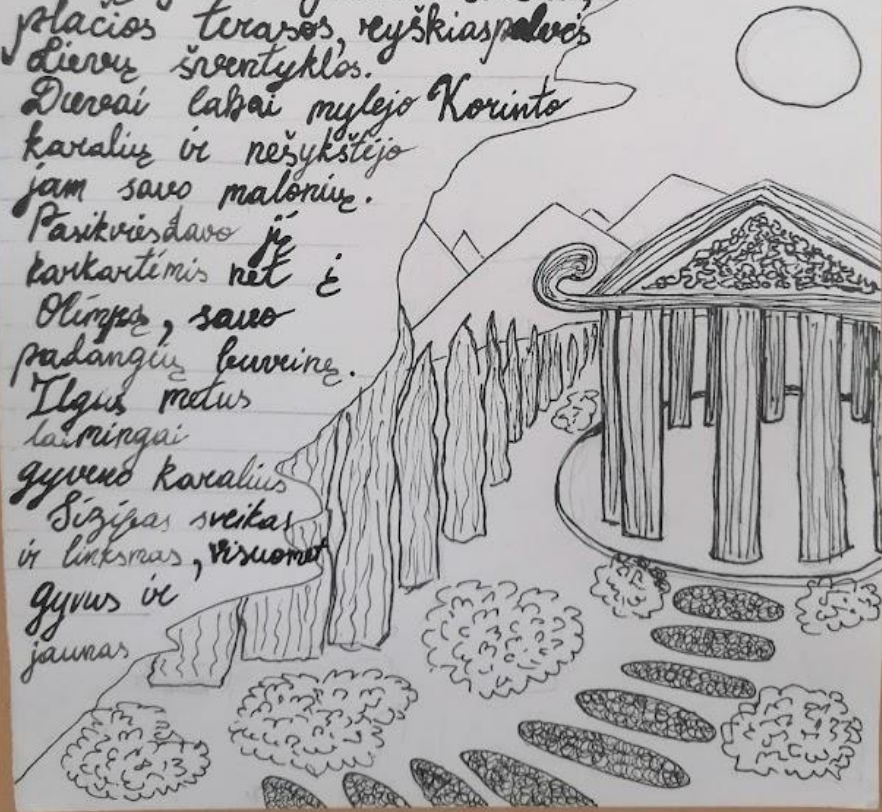 plačios terasos, ryškiaspalvės
Dievų šventyklos.
Dievai labai mylėjo Korinto
karalių ir nešykštėjo
jam savo malonių.
Pasikviesdavo jį
karkartėmis net į
Olimpą, savo
padangių buveinę.
Ilgus metus
laimingai
gyveno karalius
Sizifas sveikas
ir linksmas, visuomet
gyvus ir
jaunas